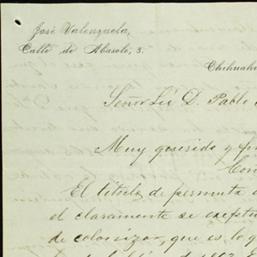 José Valenzuela,
Calle de Abasolo, 3.
Chihuahu
Señor Lic D. Pablo
Muy querido y
Con
El título de permuta
el claramente se
de colonizar, que es, lo q